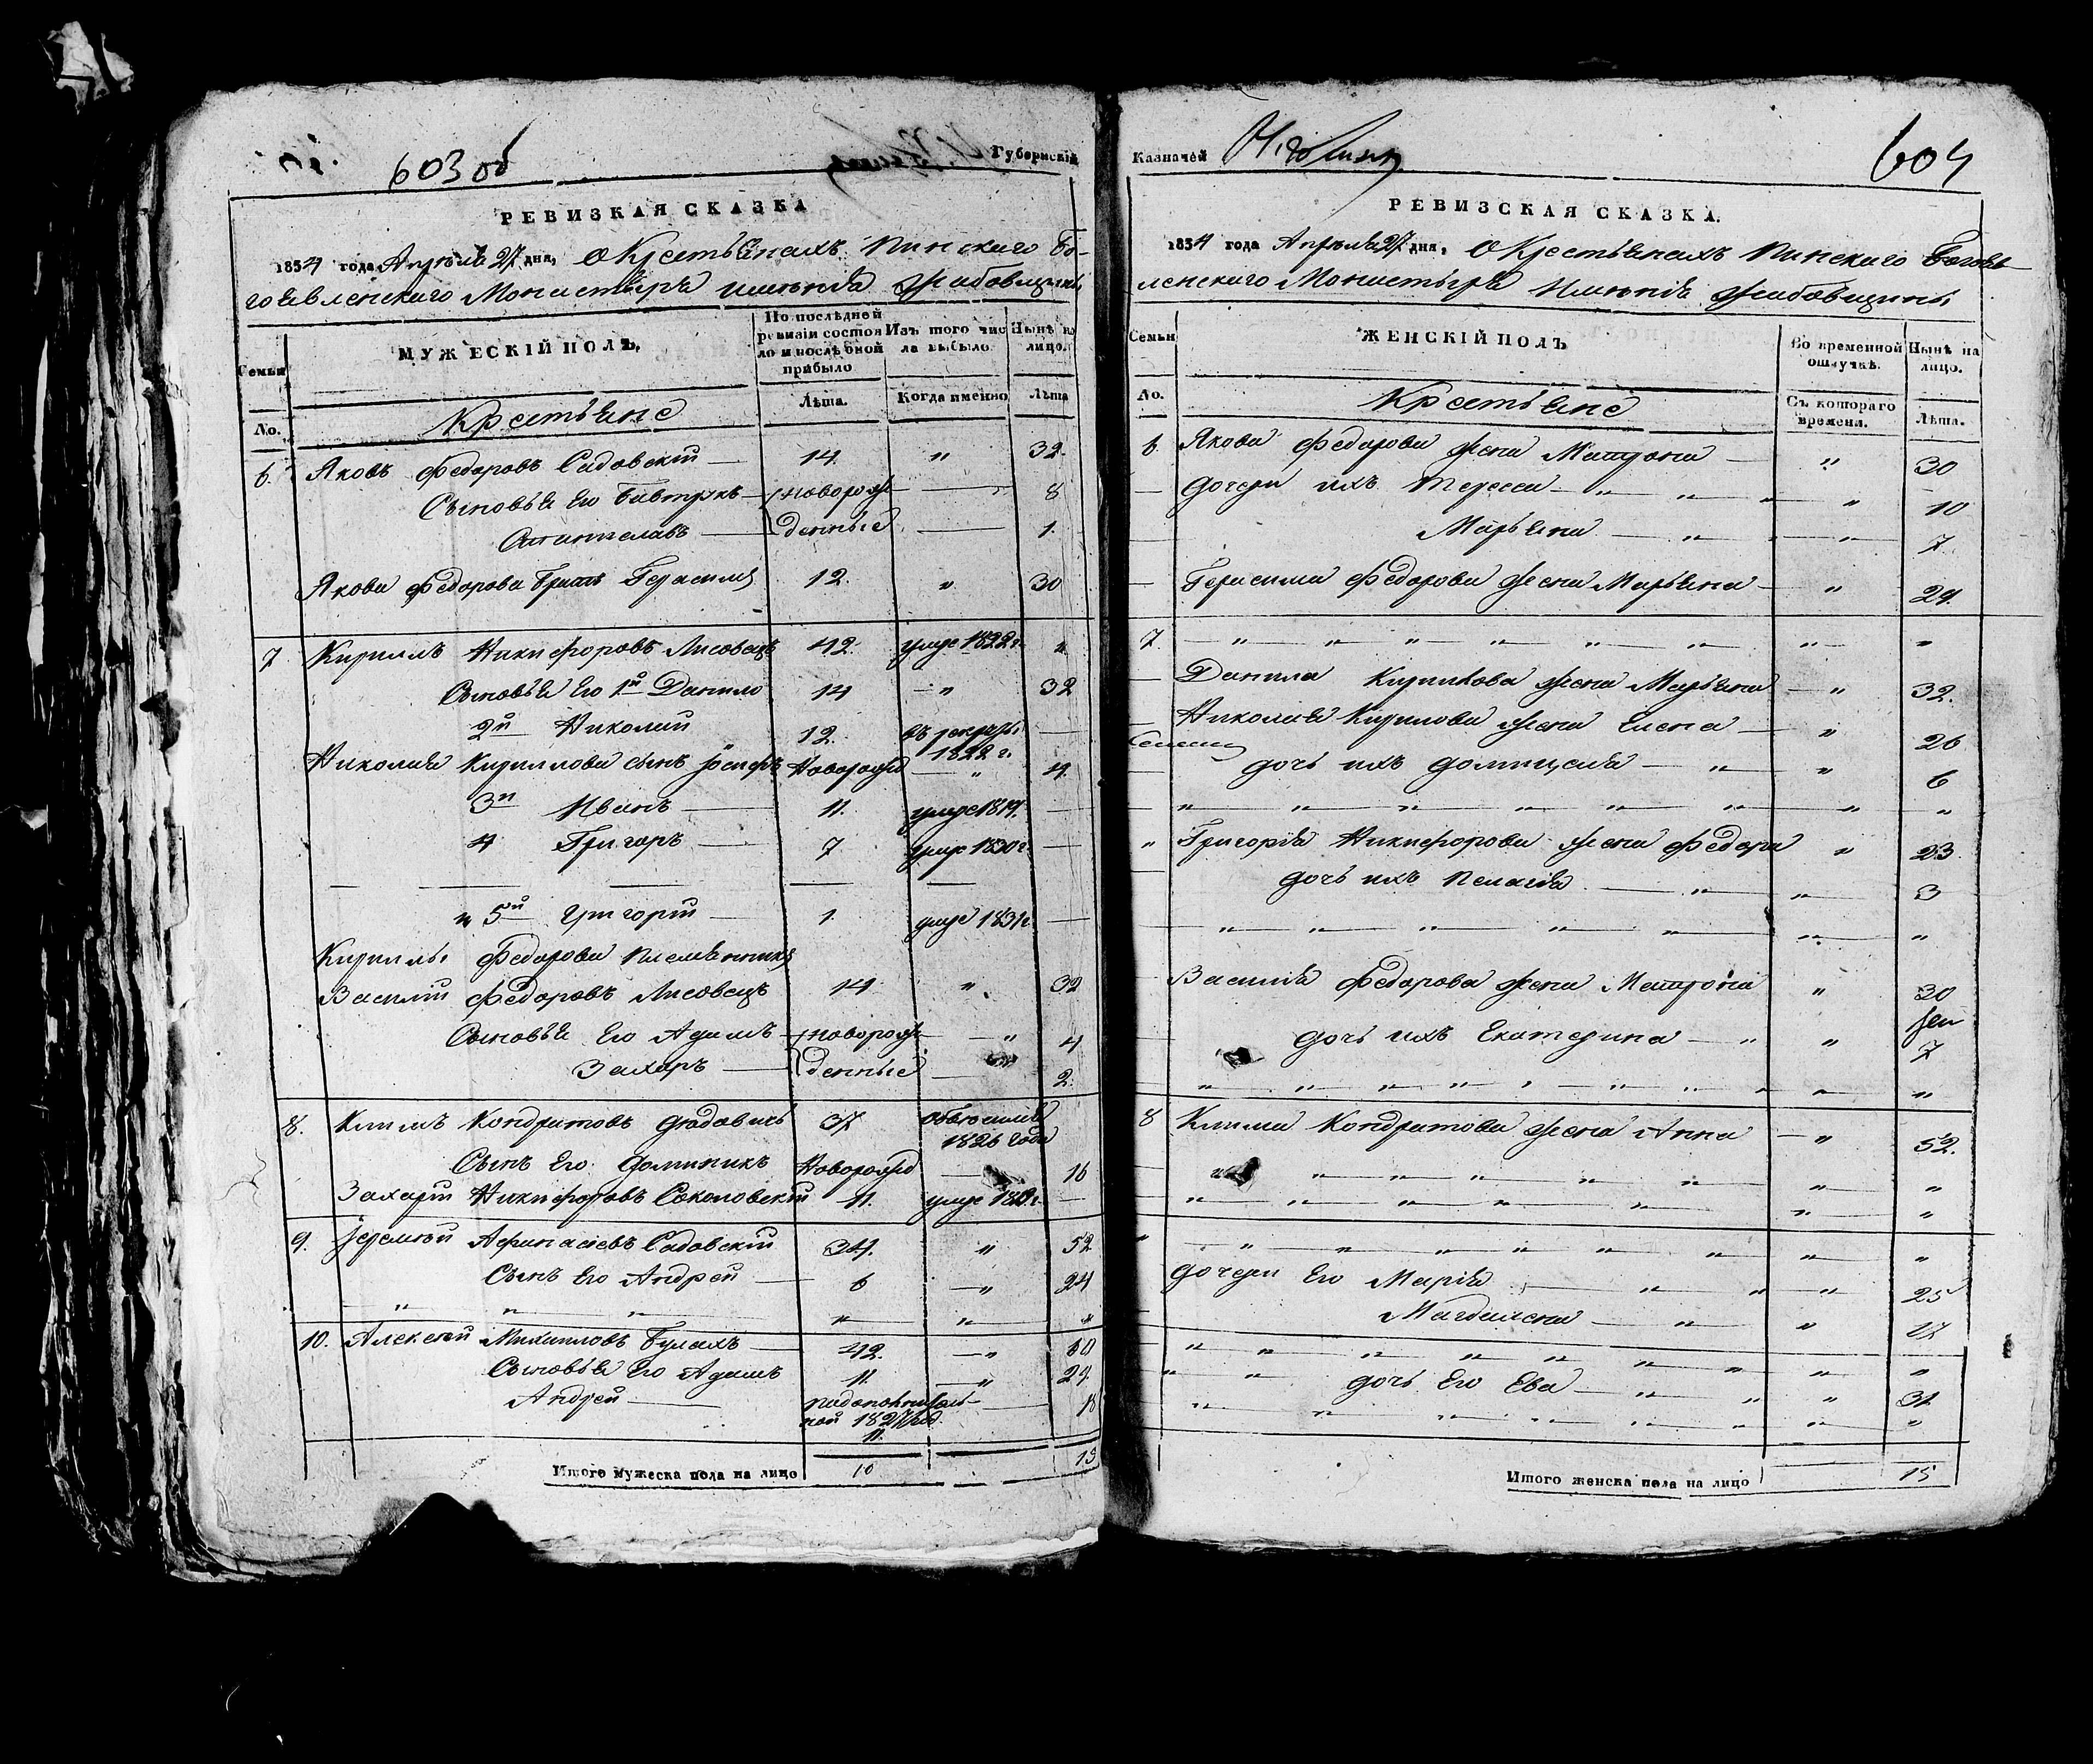 603 об
Губернскій
РЕВИЗКАЯ СКАЗКА
1834 года Апрѣля 27 дня, О Крестьянахъ Пинского Бо-
гоявленского Монастыря имѣнія Жабовщины
Семьи
МУЖЕСКІЙ ПОЛЪ.
По послѣдней ревизіи состояло и послѣ оной прибыло
Изъ того числа выбыло
Нынѣ на лицо.
No.
Лѣта.
Когда именно
Лѣта
Крестьяне
6 Яковъ Федоровъ Садовскій 14. " 32.
Сыновья Его новорож- 8
Станиславъ денные 1.
Якова Федорова братъ Герасимъ 12. " 30
7 Кириллъ Никифоровъ Лисовецъ 42. умре 1822 г. "
Сыновья Его 1й Данило 14 " 32
2й Николай 12. въ рекруты 1822 г.
Николая Кириллова сынъ Іосифъ Новорожд " 4.
3й Иванъ 11. умре 1819.
4 Григоръ 7 умре 1830 г.
" 5й Григорій 1. умре 1831 г.
Кириллы Федорова племянникъ
Василій Федоровъ Лисовецъ 14 " 32
Сыновья Его Адамъ новорож- " 4
Захаръ денные 2.
8. Климъ Кондратовъ 37 1826 года
Сынъ Его Доминикъ Новорожд 16
Захарій Никифоровъ Соколовскій 11. умре
9. Іеремѣй Афанасіевъ Садовскій 34. " 52
Сынъ Его Андрей 6 " 24
" " " " " "
10. Алексѣй Михаиловъ Булахъ 42. " 60
Сыновья Его Адамъ 11 " 29
Андрей 1827 год. 11. 18
Итого мужеска пола на лицо 10 13
Казначей
604
РЕВИЗСКАЯ СКАЗКА.
1834 года Апрѣля 27 дня, О Крестьянахъ Пинского Богояв-
ленского Монастыря Имѣнія Жабовщины
Семьи
ЖЕНСКІЙ ПОЛЪ
Во временной отлучкѣ.
Нынѣ на лицо.
No.
Съ котораго времени.
Лѣта.
Крестьяне
6. Якова Федорова жена Матрона " 30
Дочери ихъ Тереса " " " " 10
Марьяна " " 7
Герасима Федорова жена Марьяна " 29.
7. " " " " " " " "
Данила Кирилова жена Марьяна " 32.
Николая Кирилова жена Елена " 26
дочь ихъ Домицеля " " 6
" " " " " " " "
" Григорія Никифорова жена Федора " 23
дочь ихъ Пелагія " " 3
" " " " " " "
Василія Федорова жена Матрона " 30
дочь ихъ Екатерина " " 7
" " " " " " " "
8 Клима Кондратова жена Анна " 52.
" " " " " " " "
" " " " " " "
" " " " " " " " "
дочери Его Марія " " " 25
Магдалена " " 17
" " " " " " " " "
" " дочь Его Ева " " " 31.
" " " " " " " "
Итого женска пола на лицо 15